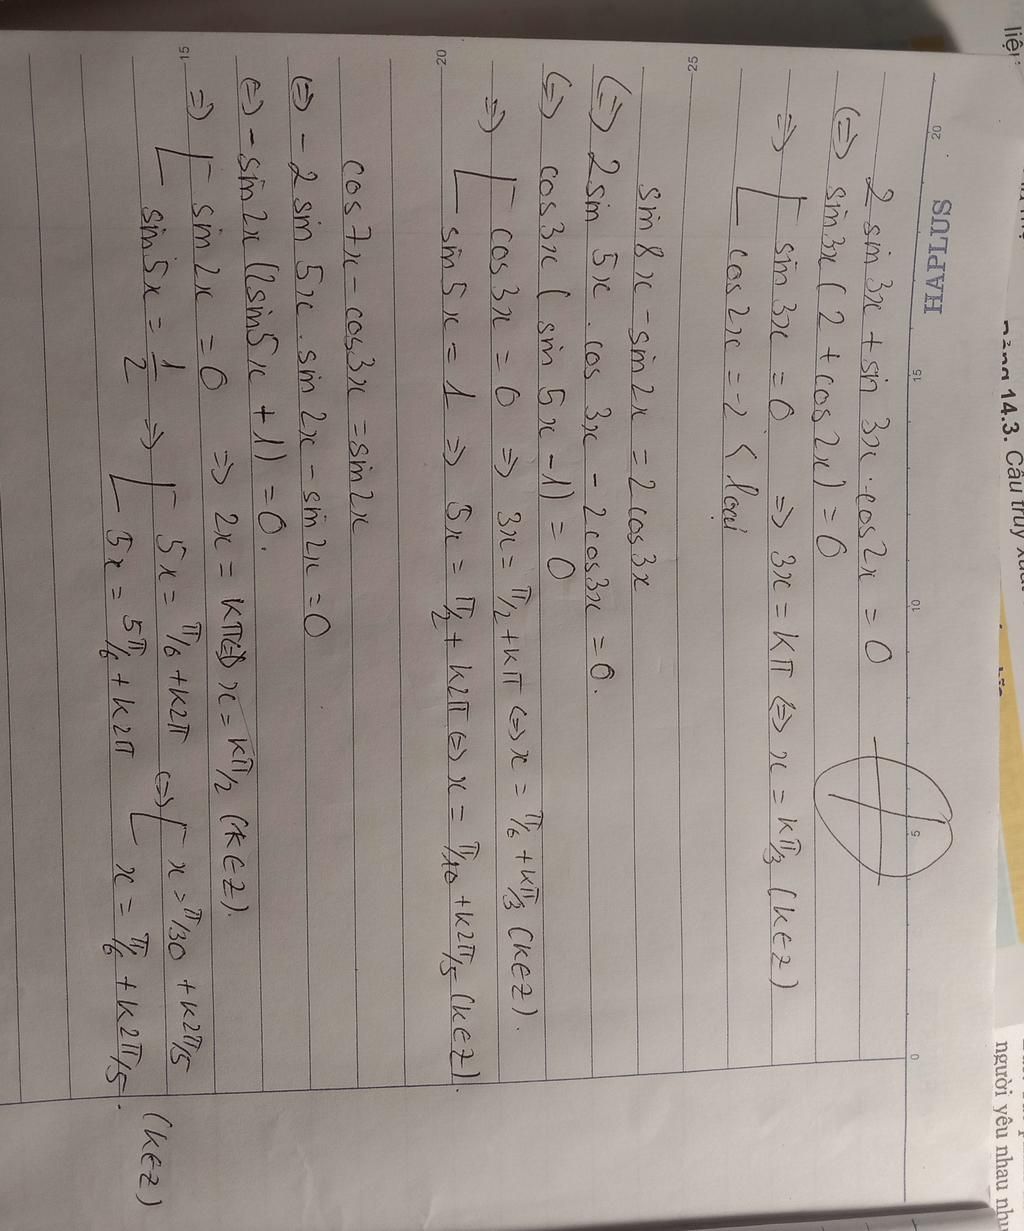 liệu
Bảng 14.3. Cấu trúc
người yêu nhau
HAPLUS
20
15
10
5
0
2 sin 3x + sin 3x . cos 2x = 0
(=) sin 3x ( 2 + cos 2x ) = 0
=) [ sin 3x = 0 => 3x = kπ (=) x = kπ/3 (k∈Z)
[ cos 2x = -2 < loại
25
sin 8x - sin 2x = 2 cos 3x
(=) 2 sin 5x . cos 3x - 2 cos 3x = 0.
(=) cos 3x ( sin 5x - 1) = 0
=) [ cos 3x = 0 => 3x = π/2 + kπ (=) x = π/6 + kπ/3 (k∈Z).
20 [ sin 5x = 1 => 5x = π/2 + k2π (=) x = π/10 + k2π/5 (k∈Z).
cos 7x - cos 3x = sin 2x
(=) - 2 sin 5x . sin 2x - sin 2x = 0
(=) - sin 2x (2 sin 5x + 1) = 0.
15 =) [ sin 2x = 0 => 2x = kπ (=) x = kπ/2 (k∈Z).
[ sin 5x = 1/2 => [ 5x = π/6 + k2π (=) [ x = π/30 + k2π/5
[ 5x = 5π/6 + k2π [ x = π/6 + k2π/5. (k∈Z)